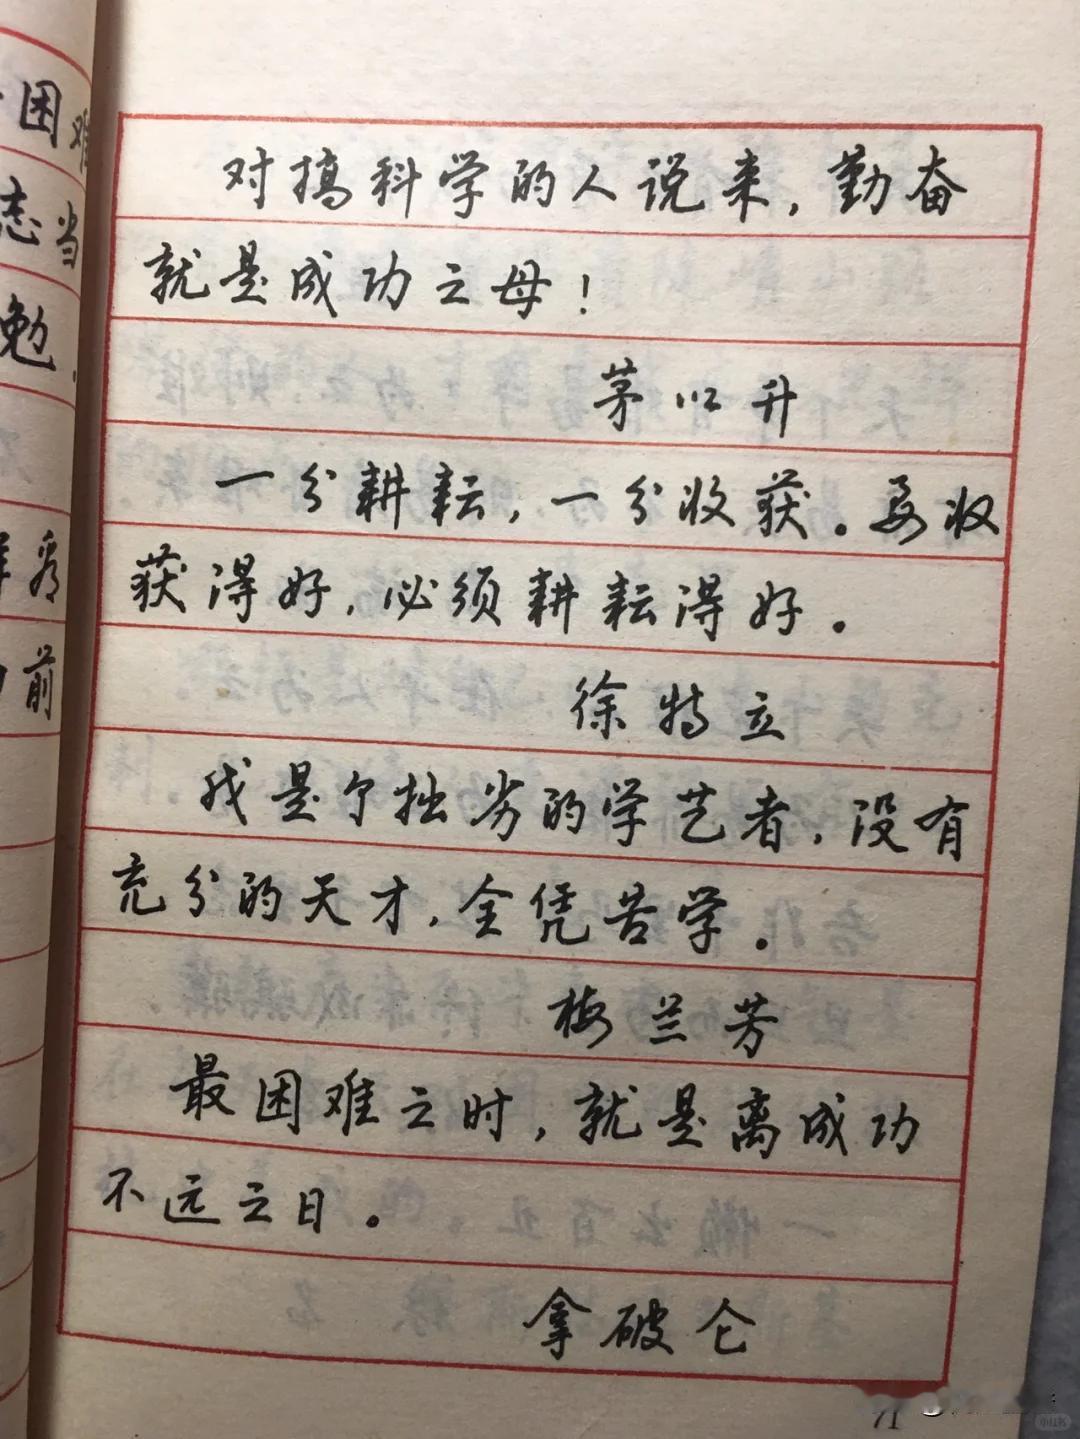 困难
志当
勉.
秀
前
对搞科学的人说来，勤奋
就是成功之母！
茅以升
一分耕耘，一分收获。要收
获得好，必须耕耘得好。
徐特立
我是个拙劣的学艺者，没有
充分的天才，全凭苦学。
梅兰芳
最困难之时，就是离成功
不远之日。
拿破仑
71
小红书